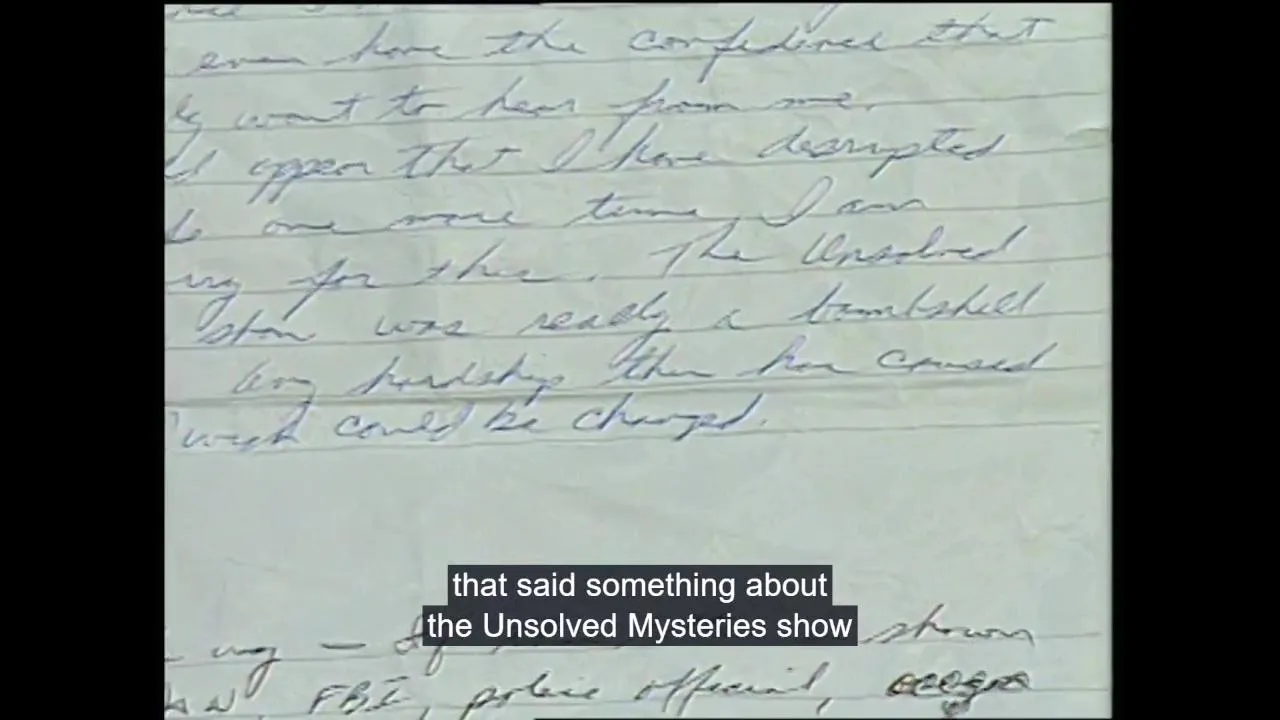 even have the confidence that
want to hear from me.
appear that I have disrupted
one more time. I am
for this. The Unsolved
was really a bombshell
Any hardship this has caused
wish could be changed.
that said something about
the Unsolved Mysteries show
way — If shown
FBI, police official,